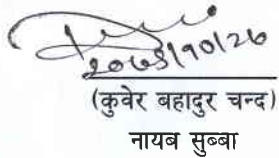 २०७५/१०/२७
(कुवेर बहादुर चन्द)
नायब सुब्बा